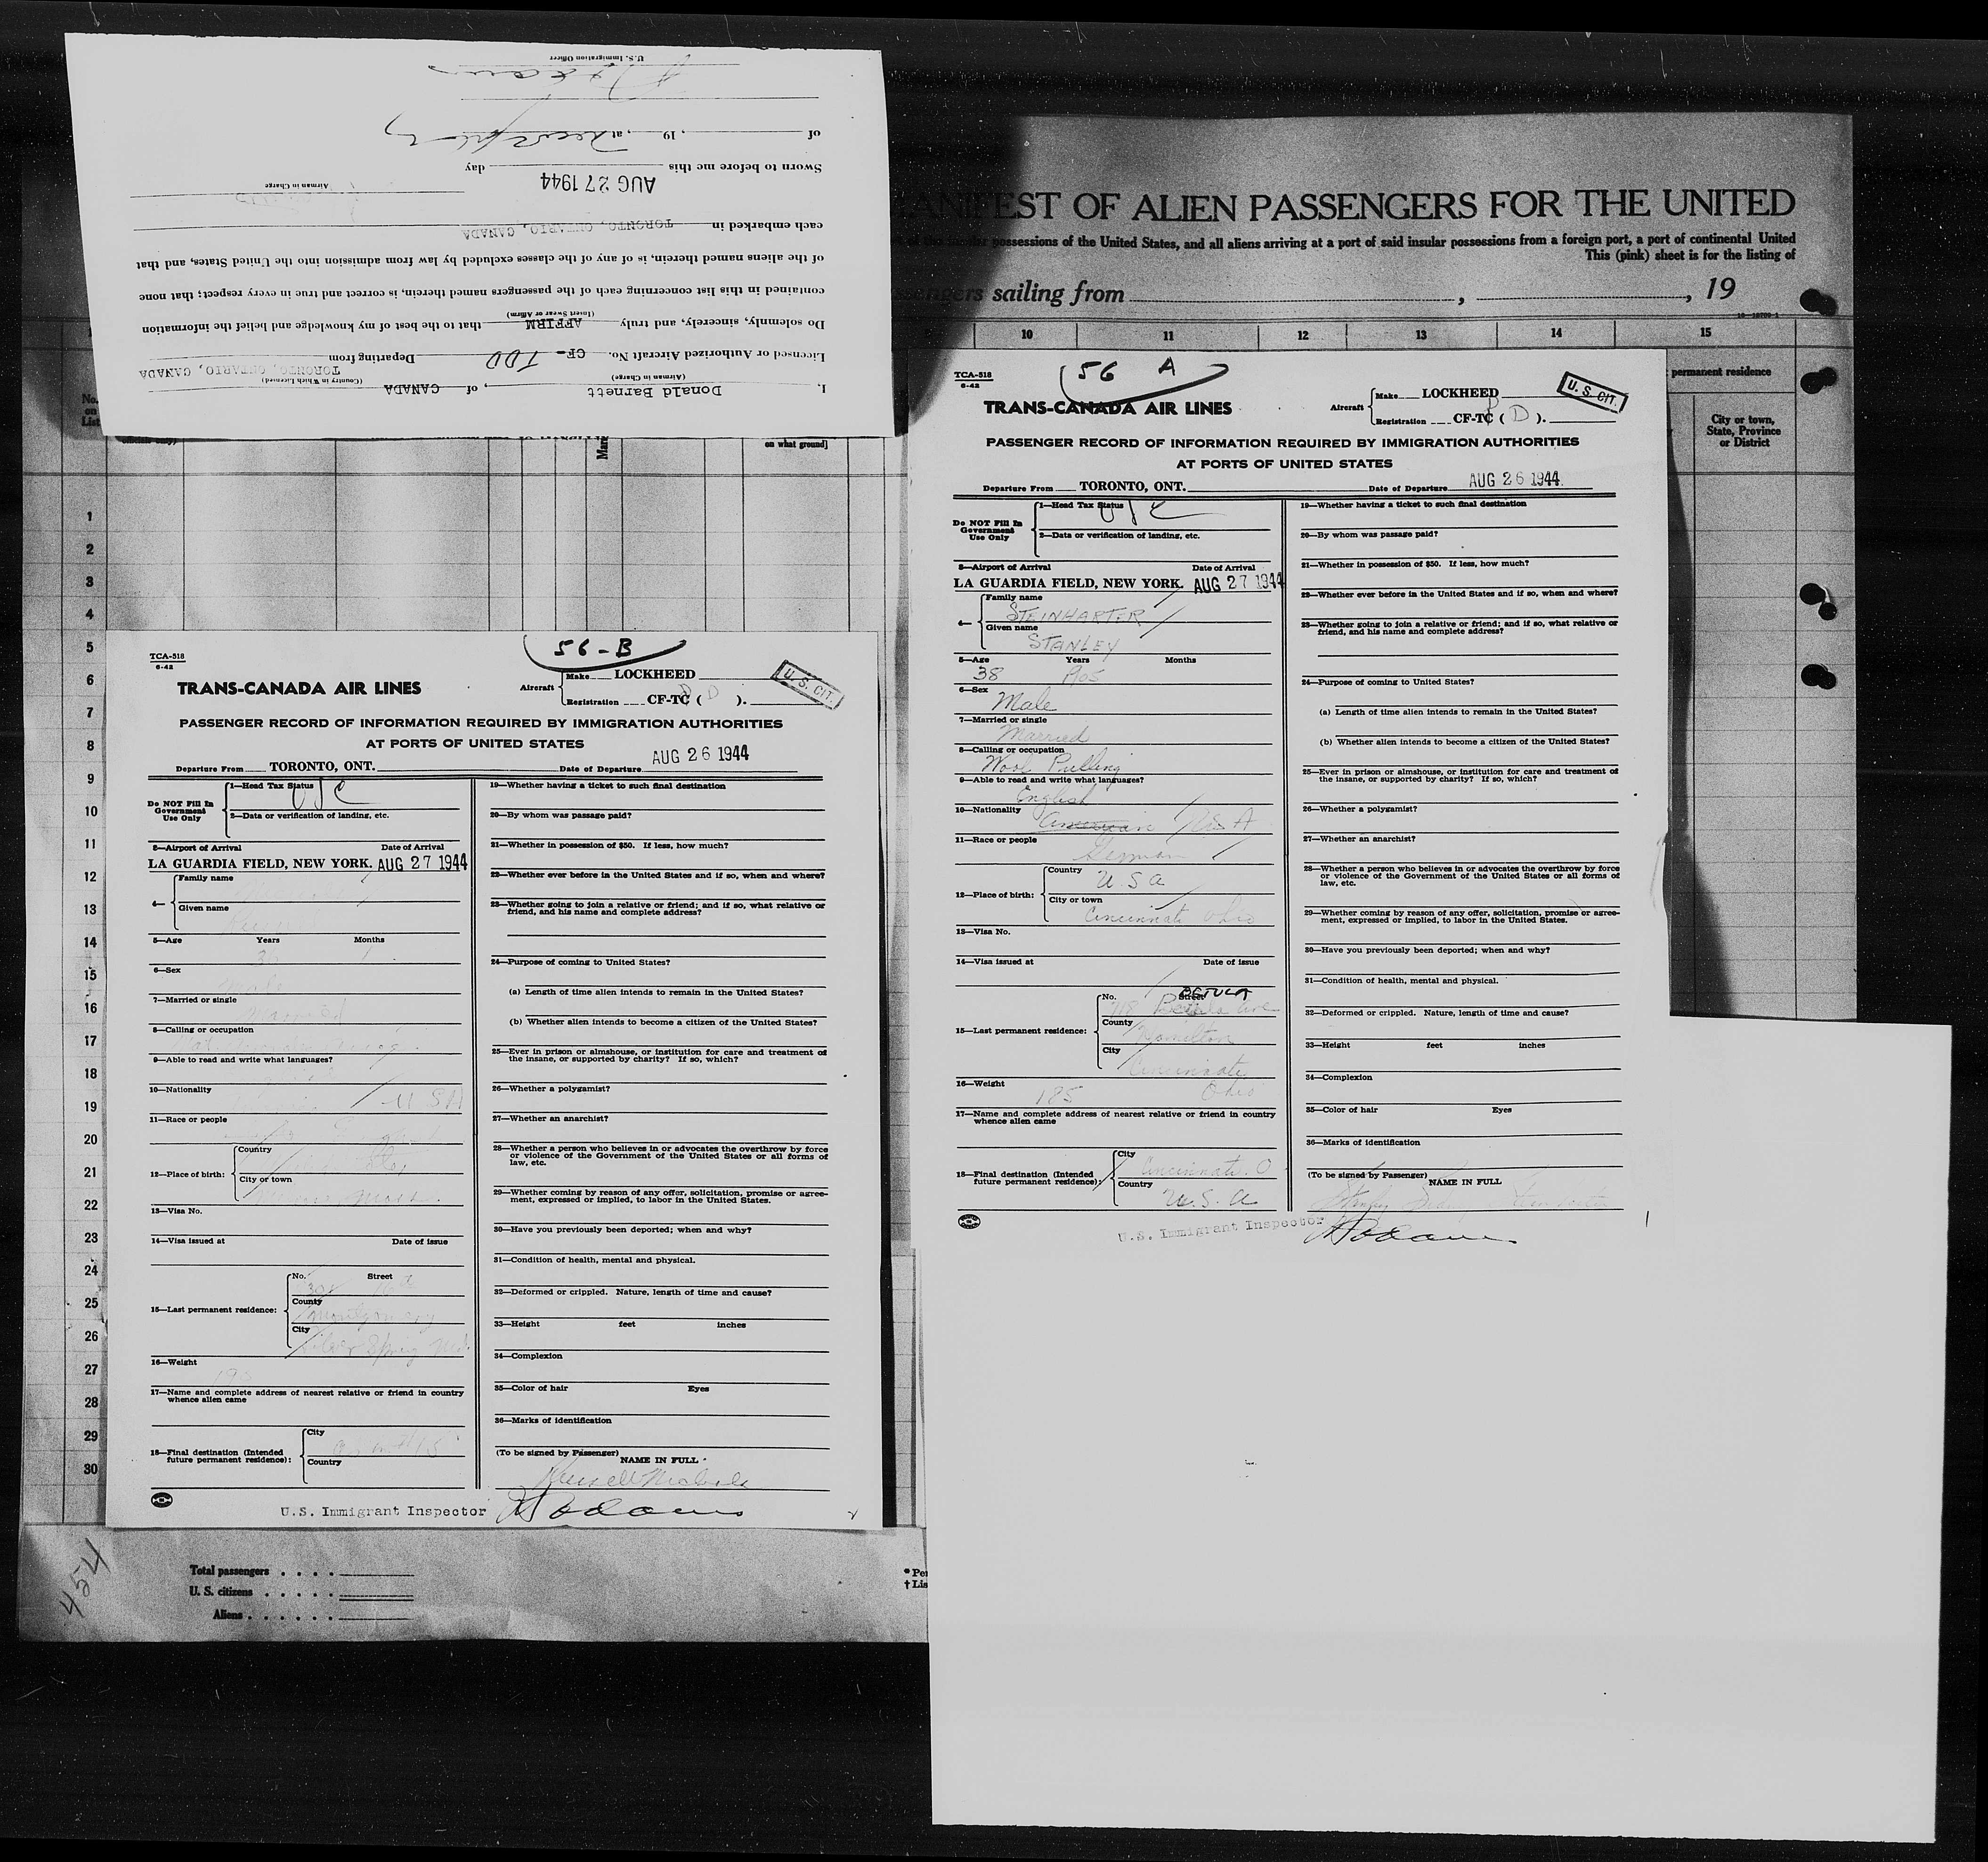 U.S. Immigration Officer
of , 19 , at New York
Sworn to before me this day
AUG 27 1944
Airman in Charge
each embarked in TORONTO, ONTARIO, CANADA
of the aliens named therein, is of any of the classes excluded by law from admission into the United States, and that
contained in this list concerning each of the passengers named therein, is correct and true in every respect; that none
(Insert Swear or Affirm)
Do solemnly, sincerely, and truly AFFIRM that to the best of my knowledge and belief the information
Licensed or Authorized Aircraft No. CF- TDD Departing from
TORONTO, ONTARIO, CANADA
(Airman in Charge) (Country in Which Licensed)
I, Donald Barnett, of CANADA
MANIFEST OF ALIEN PASSENGERS FOR THE UNITED
possessions of the United States, and all aliens arriving at a port of said insular possessions from a foreign port, a port of continental United
This (pink) sheet is for the listing of
sailing from , , 19
10 11 12 13 14 15
permanent residence
City or town,
State, Province
or District
No.
on
List
on what ground]
1
2
3
4
5
6
7
8
9
10
11
12
13
14
15
16
17
18
19
20
21
22
23
24
25
26
27
28
29
30
TCA-518
6-42
56-B
TRANS-CANADA AIR LINES
Aircraft
Make LOCKHEED
Registration CF-TC ( D ).
U. S. CIT.
PASSENGER RECORD OF INFORMATION REQUIRED BY IMMIGRATION AUTHORITIES
AT PORTS OF UNITED STATES
Departure From TORONTO, ONT. Date of Departure AUG 26 1944
Do NOT Fill In
Government
Use Only
1—Head Tax Status USC
2—Data or verification of landing, etc.
3—Airport of Arrival Date of Arrival
LA GUARDIA FIELD, NEW YORK. AUG 27 1944
4—
Family name
Given name
5—Age Years Months
6—Sex
Male
7—Married or single
Married
8—Calling or occupation
9—Able to read and write what languages?
10—Nationality
USA
11—Race or people
12—Place of birth:
Country
City or town
Mass.
13—Visa No.
14—Visa issued at Date of issue
15—Last permanent residence:
No. Street
County
Montgomery
City
Silver Spring Md.
16—Weight
17—Name and complete address of nearest relative or friend in country
whence alien came
18—Final destination (Intended
future permanent residence):
City
Country
19—Whether having a ticket to such final destination
20—By whom was passage paid?
21—Whether in possession of $50. If less, how much?
22—Whether ever before in the United States and if so, when and where?
23—Whether going to join a relative or friend; and if so, what relative or
friend, and his name and complete address?
24—Purpose of coming to United States?
(a) Length of time alien intends to remain in the United States?
(b) Whether alien intends to become a citizen of the United States?
25—Ever in prison or almshouse, or institution for care and treatment of
the insane, or supported by charity? If so, which?
26—Whether a polygamist?
27—Whether an anarchist?
28—Whether a person who believes in or advocates the overthrow by force
or violence of the Government of the United States or all forms of
law, etc.
29—Whether coming by reason of any offer, solicitation, promise or agree-
ment, expressed or implied, to labor in the United States.
30—Have you previously been deported; when and why?
31—Condition of health, mental and physical.
32—Deformed or crippled. Nature, length of time and cause?
33—Height feet inches
34—Complexion
35—Color of hair Eyes
36—Marks of identification
(To be signed by Passenger)
NAME IN FULL
Russell
U.S. Immigrant Inspector
TCA-518
6-42
56 A
TRANS-CANADA AIR LINES
Aircraft
Make LOCKHEED
Registration CF-TC ( D ).
U. S. CIT.
PASSENGER RECORD OF INFORMATION REQUIRED BY IMMIGRATION AUTHORITIES
AT PORTS OF UNITED STATES
Departure From TORONTO, ONT. Date of Departure AUG 26 1944
Do NOT Fill In
Government
Use Only
1—Head Tax Status USC
2—Data or verification of landing, etc.
3—Airport of Arrival Date of Arrival
LA GUARDIA FIELD, NEW YORK. AUG 27 1944
4—
Family name
STEINHARTER
Given name
STANLEY
5—Age Years Months
38 1905
6—Sex
Male
7—Married or single
Married
8—Calling or occupation
Wool Pulling
9—Able to read and write what languages?
English
10—Nationality
American USA
11—Race or people
German
12—Place of birth:
Country
U S A
City or town
Cincinnati Ohio
13—Visa No.
14—Visa issued at Date of issue
15—Last permanent residence:
No. Street
BETULA
718 Betula Ave
County
Hamilton
City
Cincinnati
Ohio
16—Weight
185
17—Name and complete address of nearest relative or friend in country
whence alien came
18—Final destination (Intended
future permanent residence):
City
Cincinnati. O
Country
U.S.A
19—Whether having a ticket to such final destination
20—By whom was passage paid?
21—Whether in possession of $50. If less, how much?
22—Whether ever before in the United States and if so, when and where?
23—Whether going to join a relative or friend; and if so, what relative or
friend, and his name and complete address?
24—Purpose of coming to United States?
(a) Length of time alien intends to remain in the United States?
(b) Whether alien intends to become a citizen of the United States?
25—Ever in prison or almshouse, or institution for care and treatment of
the insane, or supported by charity? If so, which?
26—Whether a polygamist?
27—Whether an anarchist?
28—Whether a person who believes in or advocates the overthrow by force
or violence of the Government of the United States or all forms of
law, etc.
29—Whether coming by reason of any offer, solicitation, promise or agree-
ment, expressed or implied, to labor in the United States.
30—Have you previously been deported; when and why?
31—Condition of health, mental and physical.
32—Deformed or crippled. Nature, length of time and cause?
33—Height feet inches
34—Complexion
35—Color of hair Eyes
36—Marks of identification
(To be signed by Passenger)
NAME IN FULL
U.S. Immigrant Inspector
454
Total passengers
U. S. citizens
Aliens
* Per
† Lis